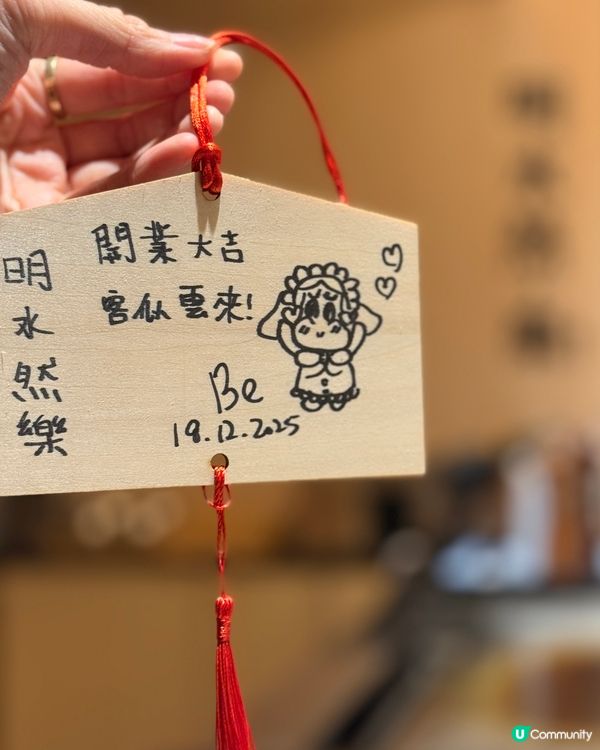 明水然樂
開業大吉
客似雲來!
Be
19.12.2025
U Community